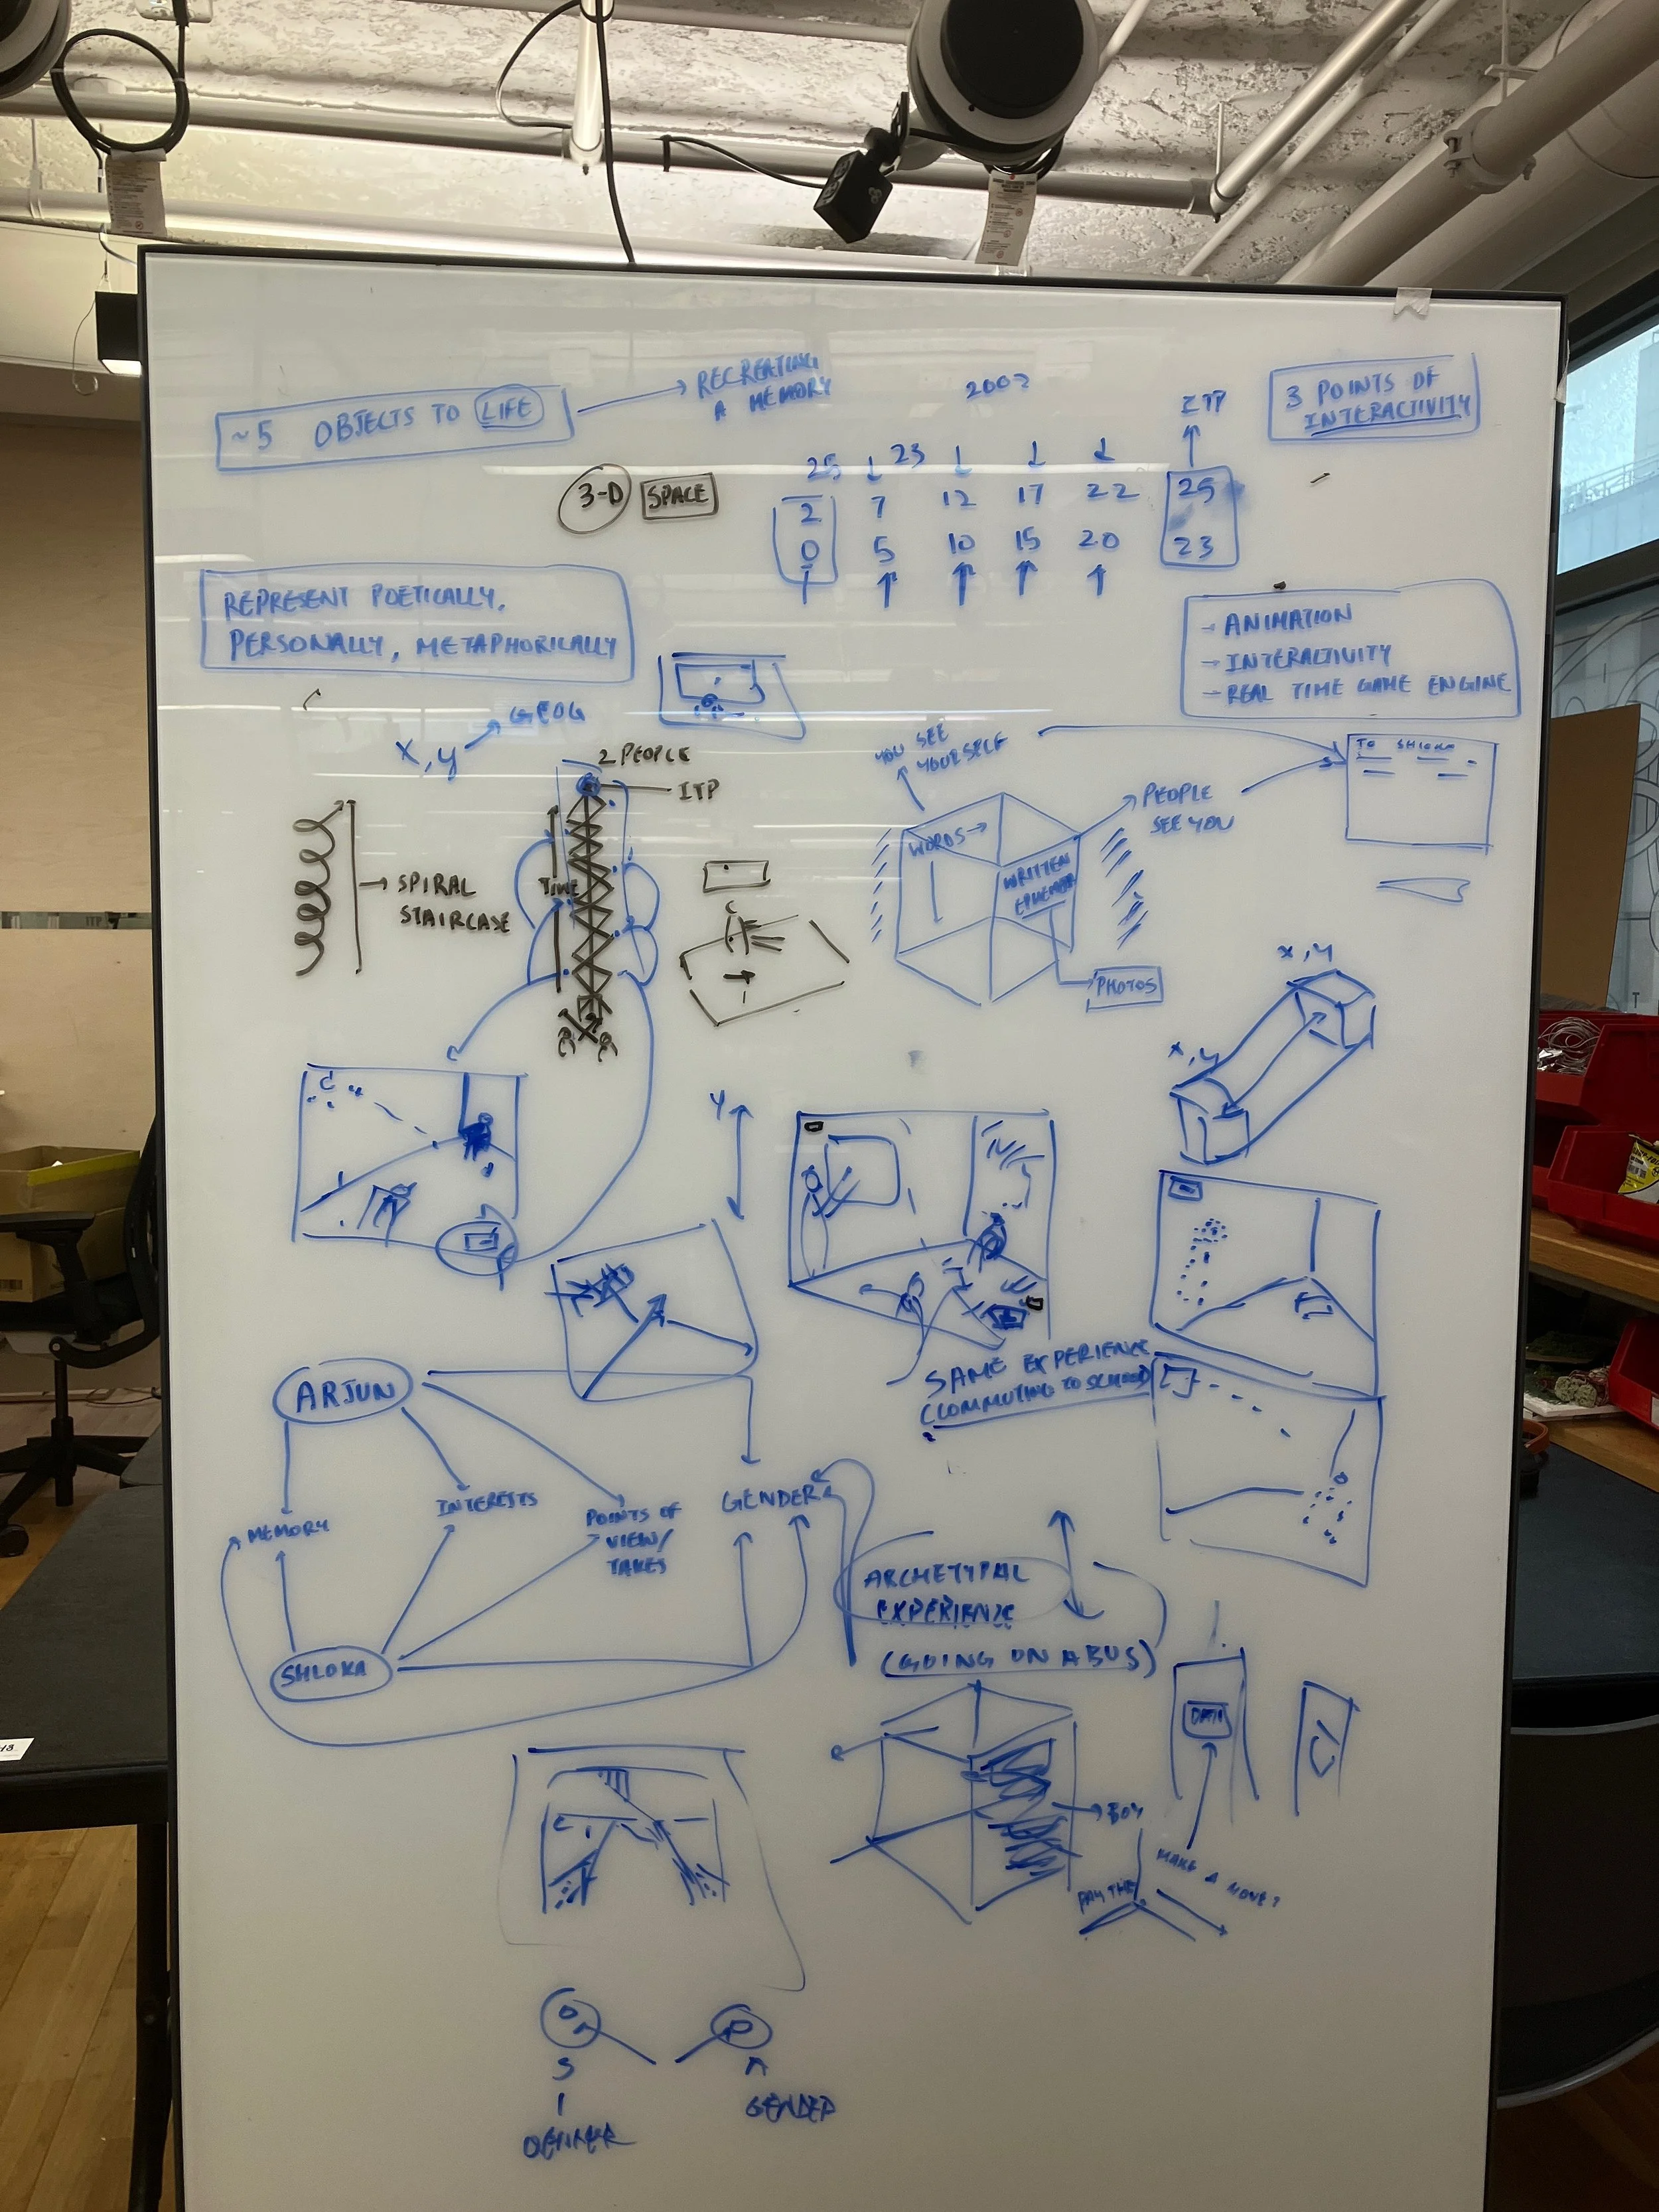 ~5 OBJECTS TO LIFE
RECREATING
A MEMORY
200?
ITP
3 POINTS OF
INTERACTIVITY
3-D SPACE
25 23
2 7 12 17 22 25
0 5 10 15 20 23
REPRESENT POETICALLY,
PERSONALLY, METAPHORICALLY
- ANIMATION
- INTERACTIVITY
- REAL TIME GAME ENGINE
X, Y
GEOG
2 PEOPLE
ITP
TIME
SPIRAL
STAIRCASE
YOU SEE
YOURSELF
WORDS
WRITTEN
EPHEMERA
PEOPLE
SEE YOU
PHOTOS
TO SHLOKA
X, Y
X, Y
Y
SAME EXPERIENCE
(COMMUTING TO SCHOOL)
ARJUN
MEMORY
INTERESTS
POINTS OF
VIEW/
TAKES
GENDER
SHLOKA
ARCHETYPAL
EXPERIENCE
(GOING ON A BUS)
DATA
BOY
MAKE A MOVE?
S
A
GENDER